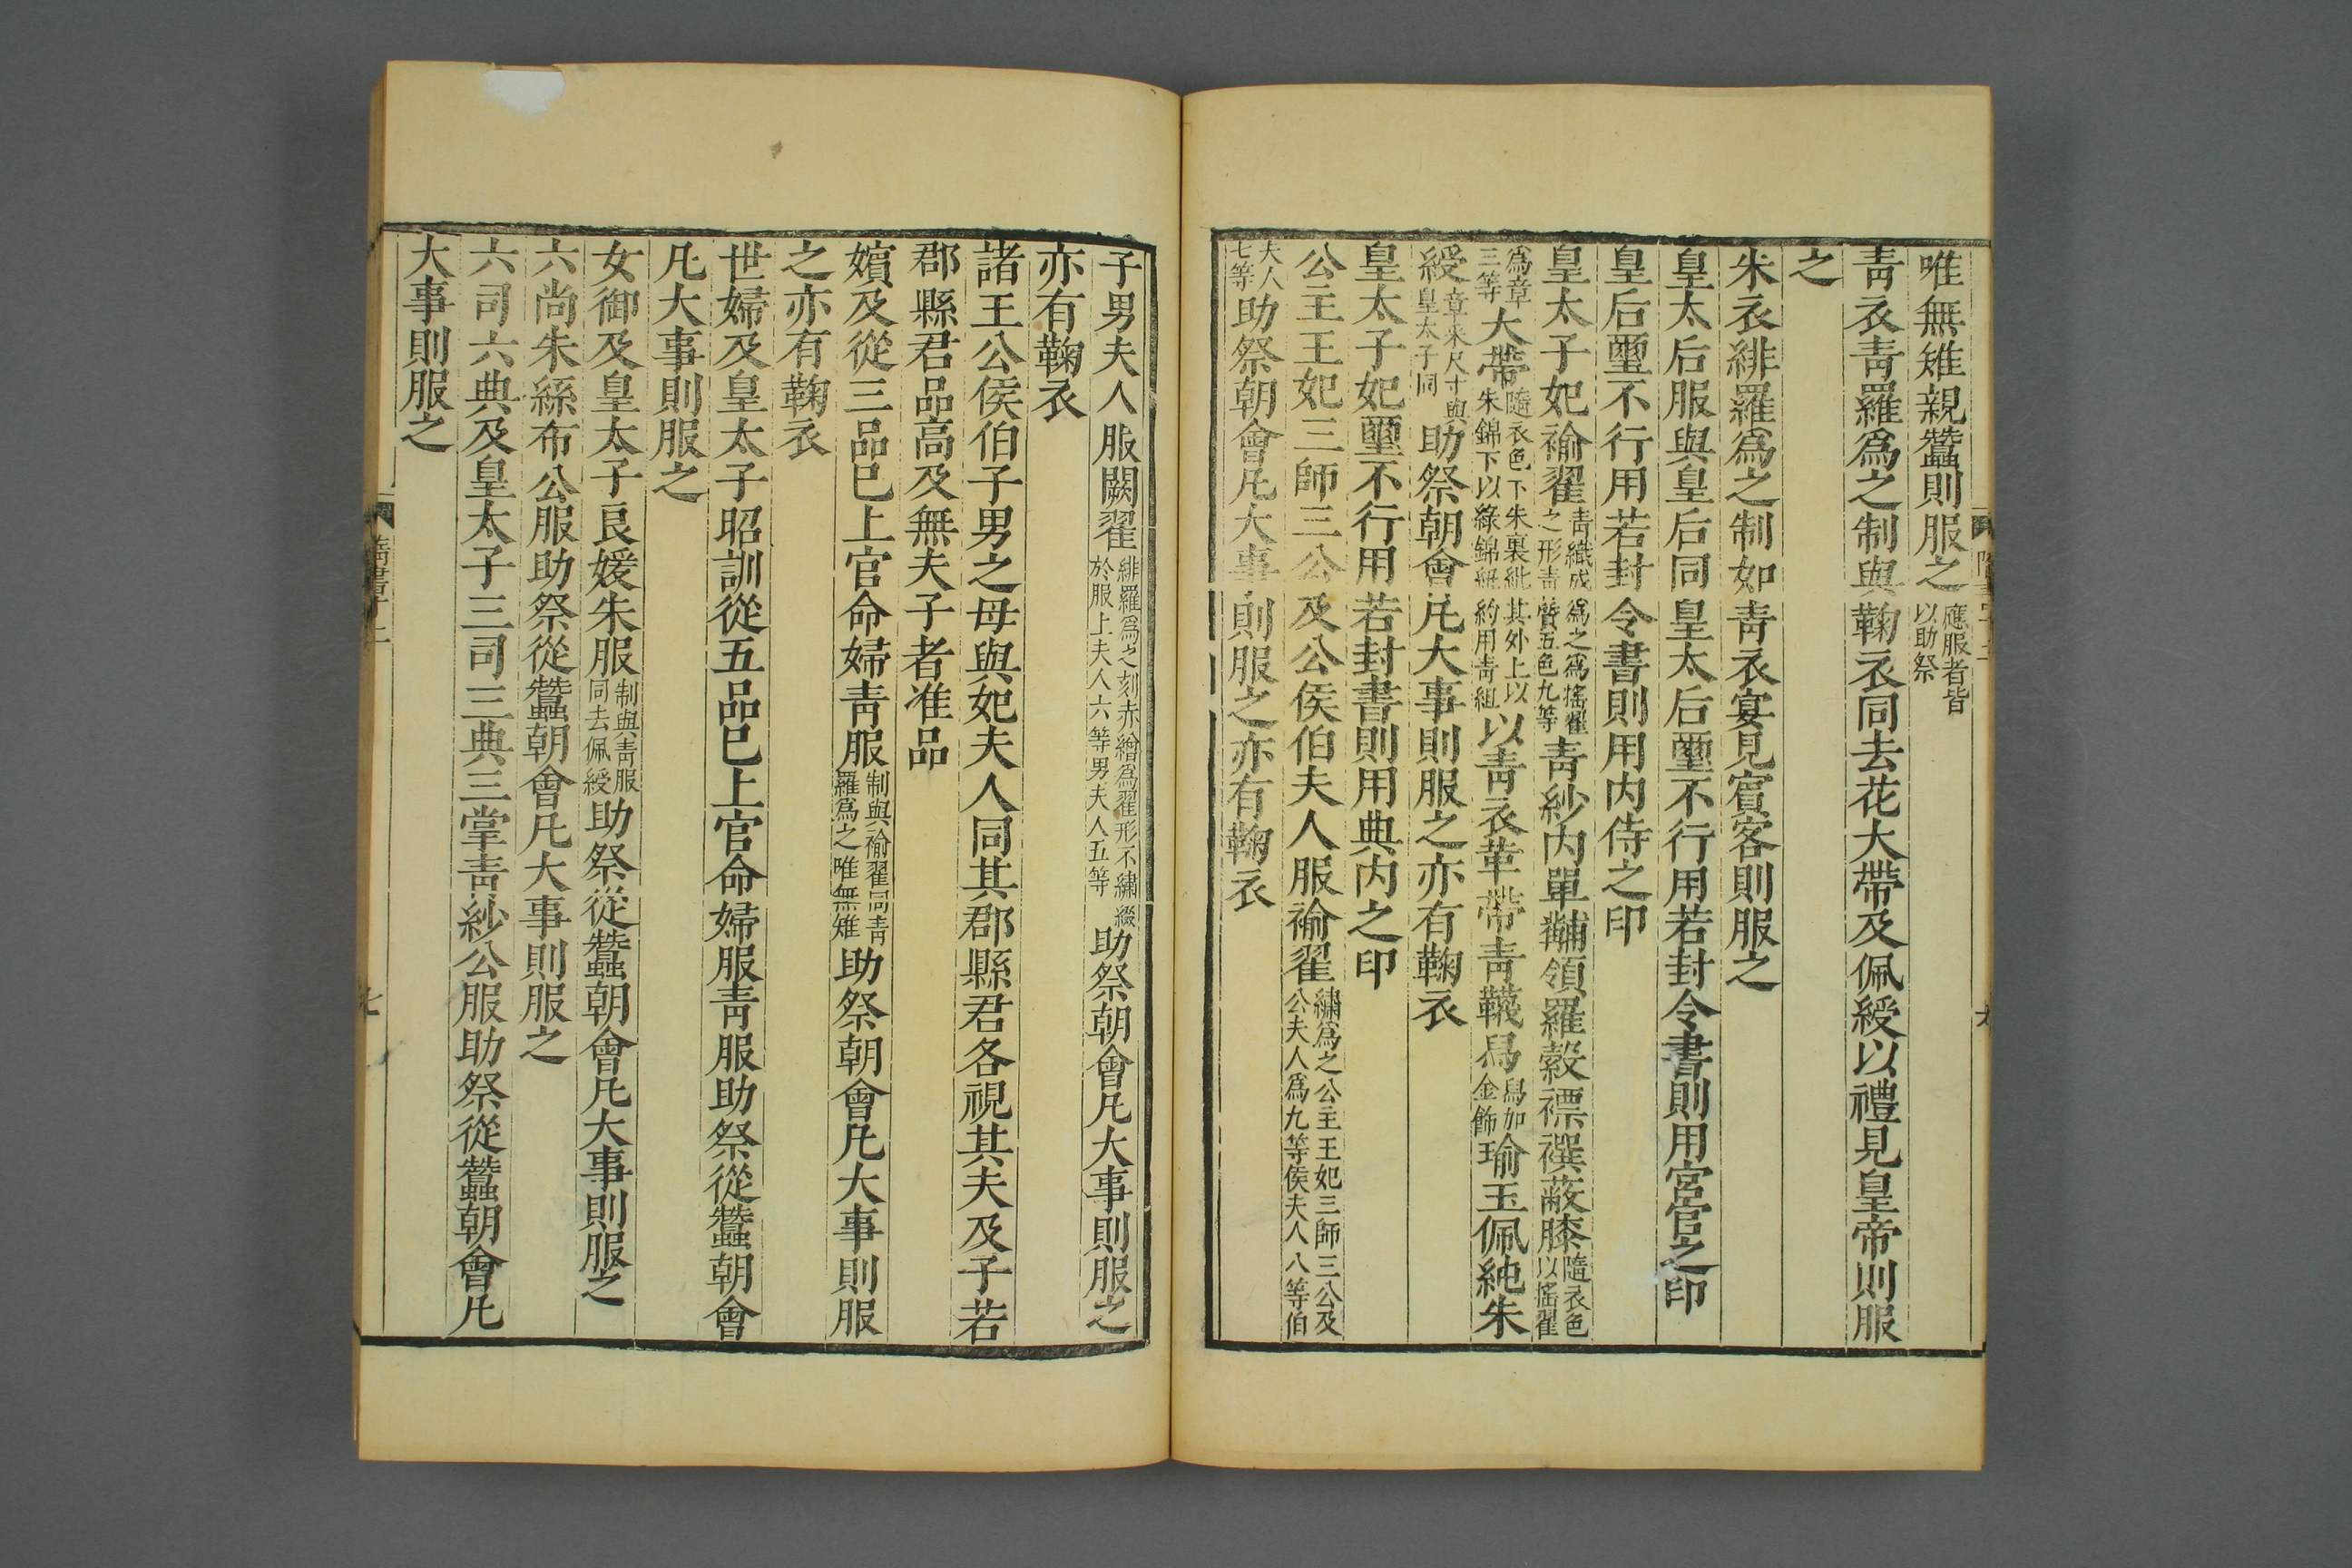 唯無雉親蠶則服之應服者皆以助祭
青衣青羅爲之制與鞠衣同去花大帶及佩綬以禮見皇帝則服
之
朱衣緋羅爲之制如青衣宴見賓客則服之
皇太后服與皇后同皇太后璽不行用若封令書則用宮官之印
皇后璽不行用若封令書則用內侍之印
皇太子妃褕翟青織成爲之爲搖翟之形青質五色九等青紗內單黼領羅縠褾襈蔽膝隨衣色以搖翟
爲章三等大帶隨衣色下朱裏紕其外上以朱錦下以綠錦紕約用青組以青衣革帶青韈舄舄加金飾瑜玉佩純朱
綬章采尺寸與皇太子同助祭朝會凡大事則服之亦有鞠衣
皇太子妃璽不行用若封書則用典內之印
公主王妃三師三公及公侯伯夫人服褕翟繡爲之公主王妃三師三公及公夫人爲九等侯夫人八等伯
夫人七等助祭朝會凡大事則服之亦有鞠衣
子男夫人服闕翟緋羅爲之刻赤繒爲翟形不繡綴於服上夫人六等男夫人五等助祭朝會凡大事則服之
亦有鞠衣
諸王公侯伯子男之母與妃夫人同其郡縣君各視其夫及子若
郡縣君品高及無夫子者准品
嬪及從三品已上官命婦青服制與褕翟同青羅爲之唯無雉助祭朝會凡大事則服
之亦有鞠衣
世婦及皇太子昭訓從五品已上官命婦服青服助祭從蠶朝會
凡大事則服之
女御及皇太子良媛朱服制與青服同去佩綬助祭從蠶朝會凡大事則服之
六尚朱絲布公服助祭從蠶朝會凡大事則服之
六司六典及皇太子三司三典三掌青紗公服助祭從蠶朝會凡
大事則服之